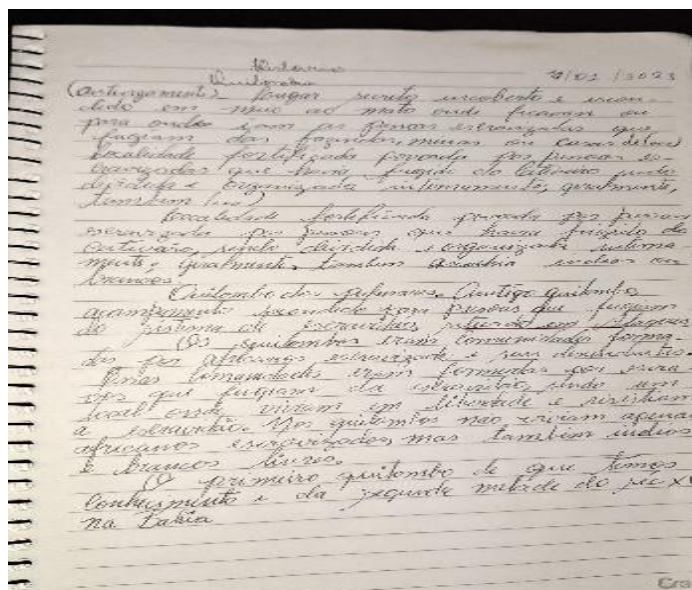 Historia
Quilombo 2/02/2023
(antigamente) lugar secreto encoberto e escon-
dido em meio ao mato onde ficavam ou
para onde iam as pessoas escravizadas que
fugiam das fazendas, minas ou casas de
Localidade fortificada povoada por pessoas es-
cravizadas que havia fugido do cativeiro, sendo
dividida e organizada internamente, geralmente,
tambem
Localidade fortificada povoada por pessoas
escravizada por pessoas que havia fugido do
Cativeiro, sendo dividida e organizada interna-
mente, geralmente, tambem indios ou
brancos.
Quilombo dos palmares. Antigo quilombo,
acampamento escondido com pessoas que fugiam
do sistema de escravidão, situado em Alagoas
Os quilombos eram comunidades forma-
das por africanos escravizado e seus descendentes
Essas comunidades eram formadas por escra-
vos que fugiam da escravidão, sendo um
local onde viviam em liberdade e resistiam
a escravidão. Nos quilombos não viviam apenas
africanos escravizados mas tambem indios
e brancos livres.
O primeiro quilombo de que temos
conhecimento e da segunda metade do sec X
na Bahia